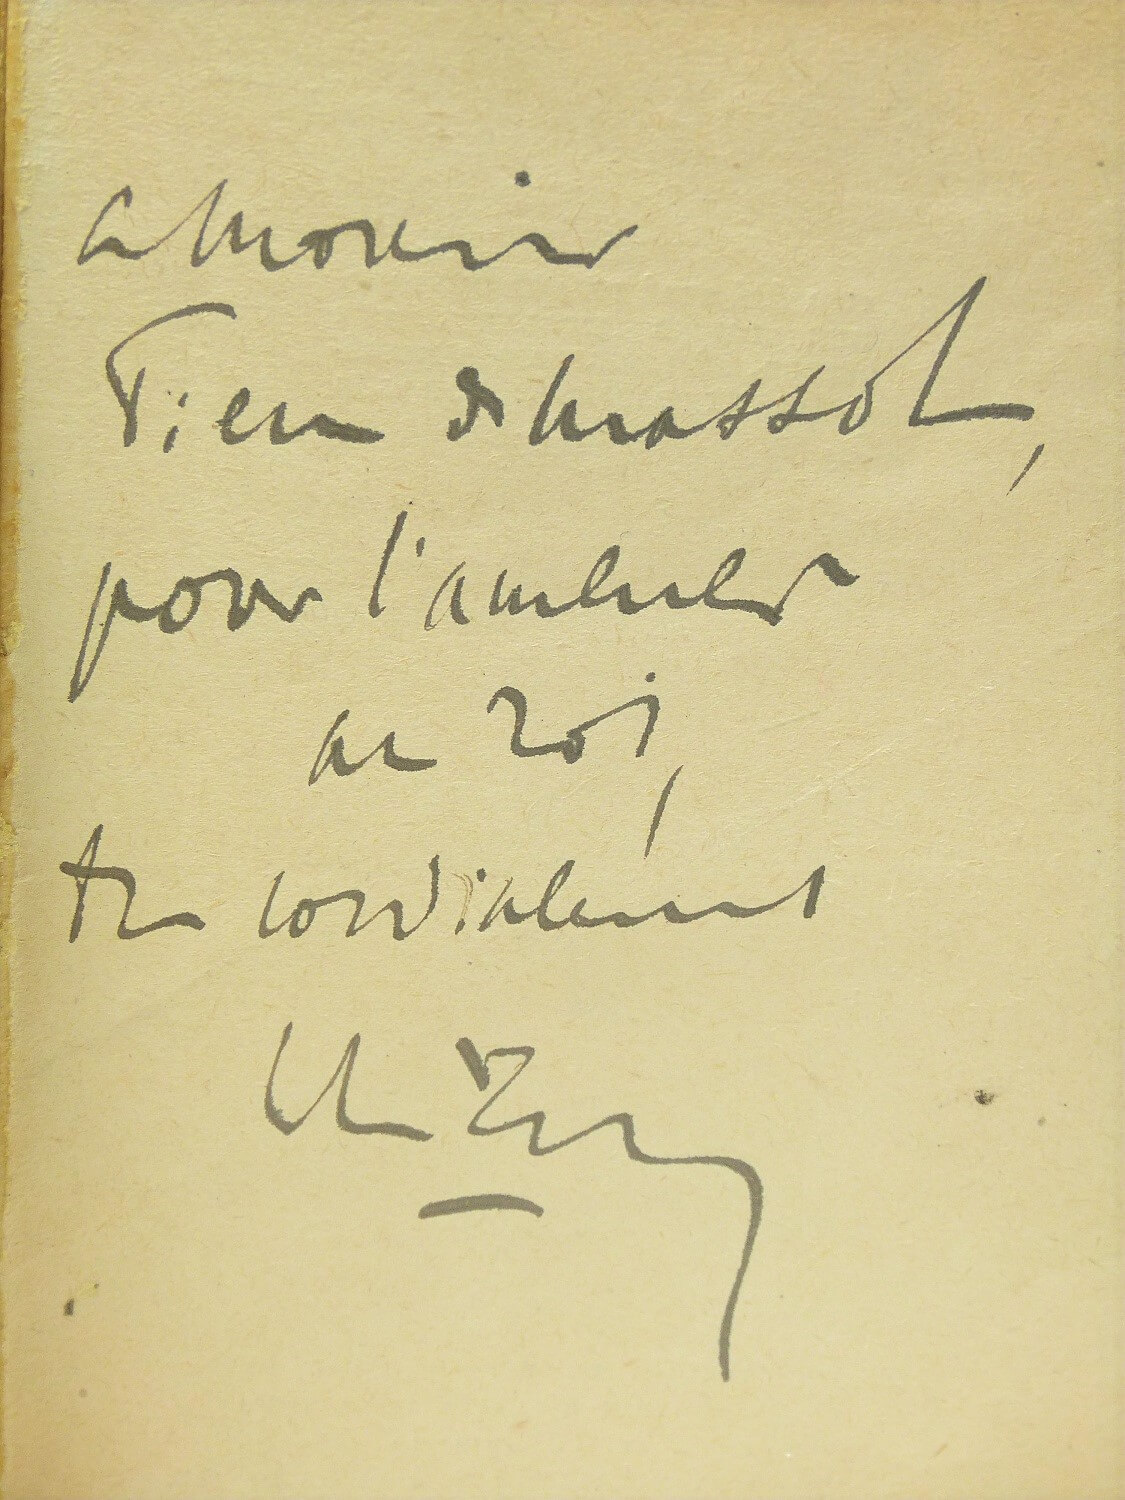 a Monsieur
Pierre de Massot,
pour l'amener
au roi,
très cordialement